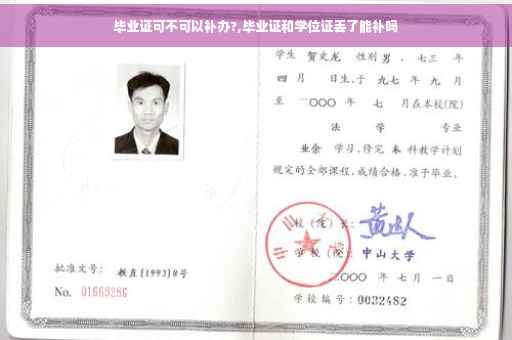 毕业证可不可以补办?,毕业证和学位证丢了能补吗
学生 贺文龙 性别 男 、七三 年
四 月 日生,于 九七 年 九 月
至 二〇〇〇 年 七 月在本校(院)
法 学 专业
业余 学习,修完 本 科教学计划
规定的全部课程,成绩合格,准予毕业。
校(院)长:
学校(院): 中山大学
二〇〇〇 年 七 月 一 日
批准文号: 教直[1993]8号
No. 01669286
学校编号: 0032482